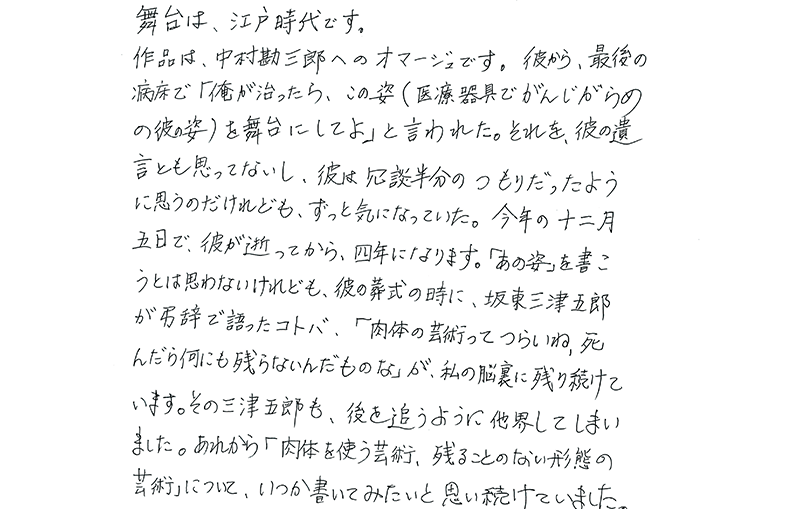 舞台は、江戸時代です。
作品は、中村勘三郎へのオマージュです。彼から、最後の
病床で「俺が治ったら、この姿(医療器具でがんじがらめ
の彼の姿)を舞台にしてよ」と言われた。それを、彼の遺
言とも思ってないし、彼は冗談半分のつもりだったよう
に思うのだけれども、ずっと気になっていた。今年の十二月
五日で、彼が逝ってから、四年になります。「あの姿」を書こ
うとは思わないけれども、彼の葬式の時に、坂東三津五郎
が弔辞で語ったコトバ、「肉体の芸術ってつらいね、死
んだら何にも残らないんだものな」が、私の脳裏に残り続けて
います。その三津五郎も、後を追うように他界してしまい
ました。あれから「肉体を使う芸術、残ることのない形態の
芸術」について、いつか書いてみたいと思い続けていました。